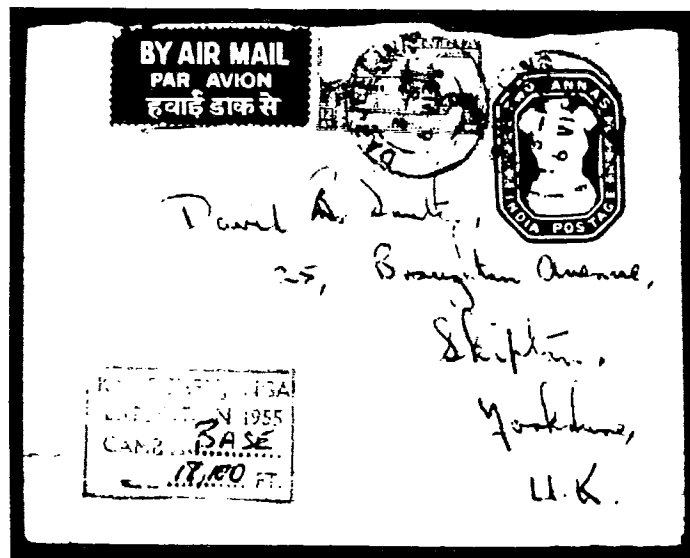 BY AIR MAIL
PAR AVION
हवाई डाक से
ANNAS
INDIA POSTAGE
David
25, Broughton Avenue,
Skipton,
Yorkshire,
U.K.
1955
CAMP BASE
18,100 FT.